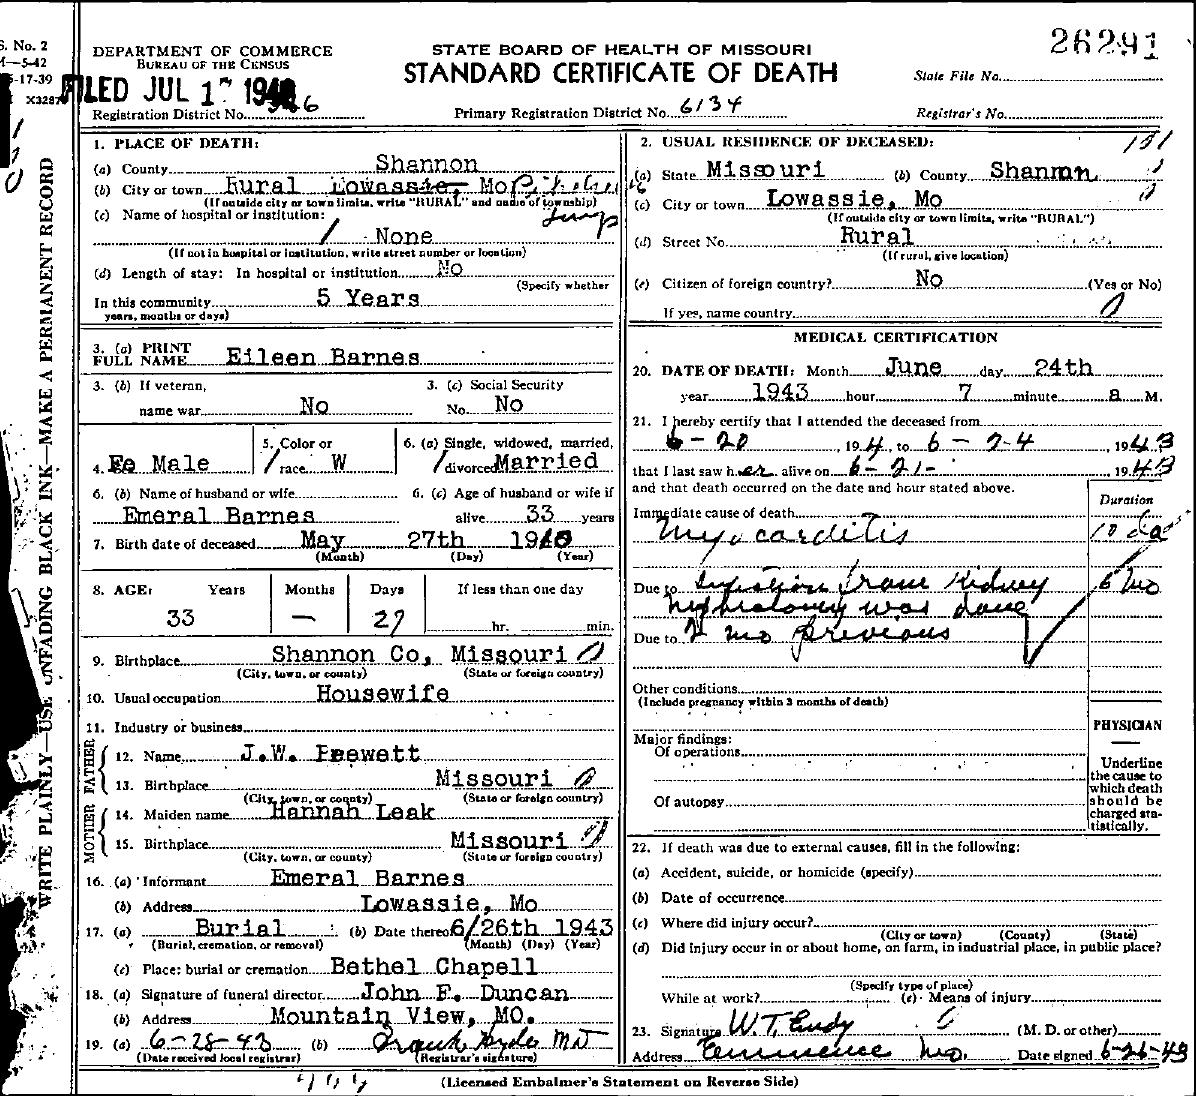 S. No. 2
M—5-42
5-17-39
X3287
WRITE PLAINLY—USE UNFADING BLACK INK—MAKE A PERMANENT RECORD
DEPARTMENT OF COMMERCE
BUREAU OF THE CENSUS
FILED JUL 17
Registration District No.
STATE BOARD OF HEALTH OF MISSOURI
STANDARD CERTIFICATE OF DEATH
Primary Registration District No. 6134
26291
State File No.
Registrar's No.
1. PLACE OF DEATH:
(a) County Shannon
(b) City or town Rural Lowassie, Mo
(If outside city or town limits, write "RURAL" and name of township)
(c) Name of hospital or institution:
None
(If not in hospital or institution, write street number or location)
(d) Length of stay: In hospital or institution No
(Specify whether
In this community 5 Years
years, months or days)
3. (a) PRINT FULL NAME Eileen Barnes
3. (b) If veteran, name war No
3. (c) Social Security No. No
4. Fe Male
5. Color or race W
6. (a) Single, widowed, married, divorced Married
6. (b) Name of husband or wife
Emeral Barnes
6. (c) Age of husband or wife if alive 33 years
7. Birth date of deceased May 27th 1910
(Month) (Day) (Year)
8. AGE: Years Months Days If less than one day
33 — 27 hr. min.
9. Birthplace Shannon Co, Missouri
(City, town, or county) (State or foreign country)
10. Usual occupation Housewife
11. Industry or business
FATHER
12. Name J.W. Prewett
13. Birthplace Missouri
(City, town, or county) (State or foreign country)
MOTHER
14. Maiden name Hannah Leak
15. Birthplace Missouri
(City, town, or county) (State or foreign country)
16. (a) Informant Emeral Barnes
(b) Address Lowassie, Mo
17. (a) Burial (b) Date thereof 6/26th 1943
(Burial, cremation, or removal) (Month) (Day) (Year)
(c) Place: burial or cremation Bethel Chapell
18. (a) Signature of funeral director John F. Duncan
(b) Address Mountain View, MO.
19. (a) 6-28-43 (b) Frank Hyde MD
(Date received local registrar) (Registrar's signature)
2. USUAL RESIDENCE OF DECEASED:
(a) State Missouri (b) County Shannon
(c) City or town Lowassie, Mo
(If outside city or town limits, write "RURAL")
(d) Street No. Rural
(If rural, give location)
(e) Citizen of foreign country? No (Yes or No)
If yes, name country
MEDICAL CERTIFICATION
20. DATE OF DEATH: Month June day 24th
year 1943 hour 7 minute a M.
21. I hereby certify that I attended the deceased from
6-20, 194, to 6-24, 1943
that I last saw her alive on 6-21-, 1943
and that death occurred on the date and hour stated above.
Duration
Immediate cause of death
Myocarditis 10 da
Due to Infection from Kidney 6 mo
nephrotomy was done
Due to 2 mo previous
Other conditions
(Include pregnancy within 3 months of death)
Major findings:
Of operations
Of autopsy
PHYSICIAN
Underline the cause to which death should be charged statistically.
22. If death was due to external causes, fill in the following:
(a) Accident, suicide, or homicide (specify)
(b) Date of occurrence
(c) Where did injury occur?
(City or town) (County) (State)
(d) Did injury occur in or about home, on farm, in industrial place, in public place?
(Specify type of place)
While at work? (e) Means of injury
23. Signature W.T. Eudy (M. D. or other)
Address Eminence Mo. Date signed 6-26-43
(Licensed Embalmer's Statement on Reverse Side)